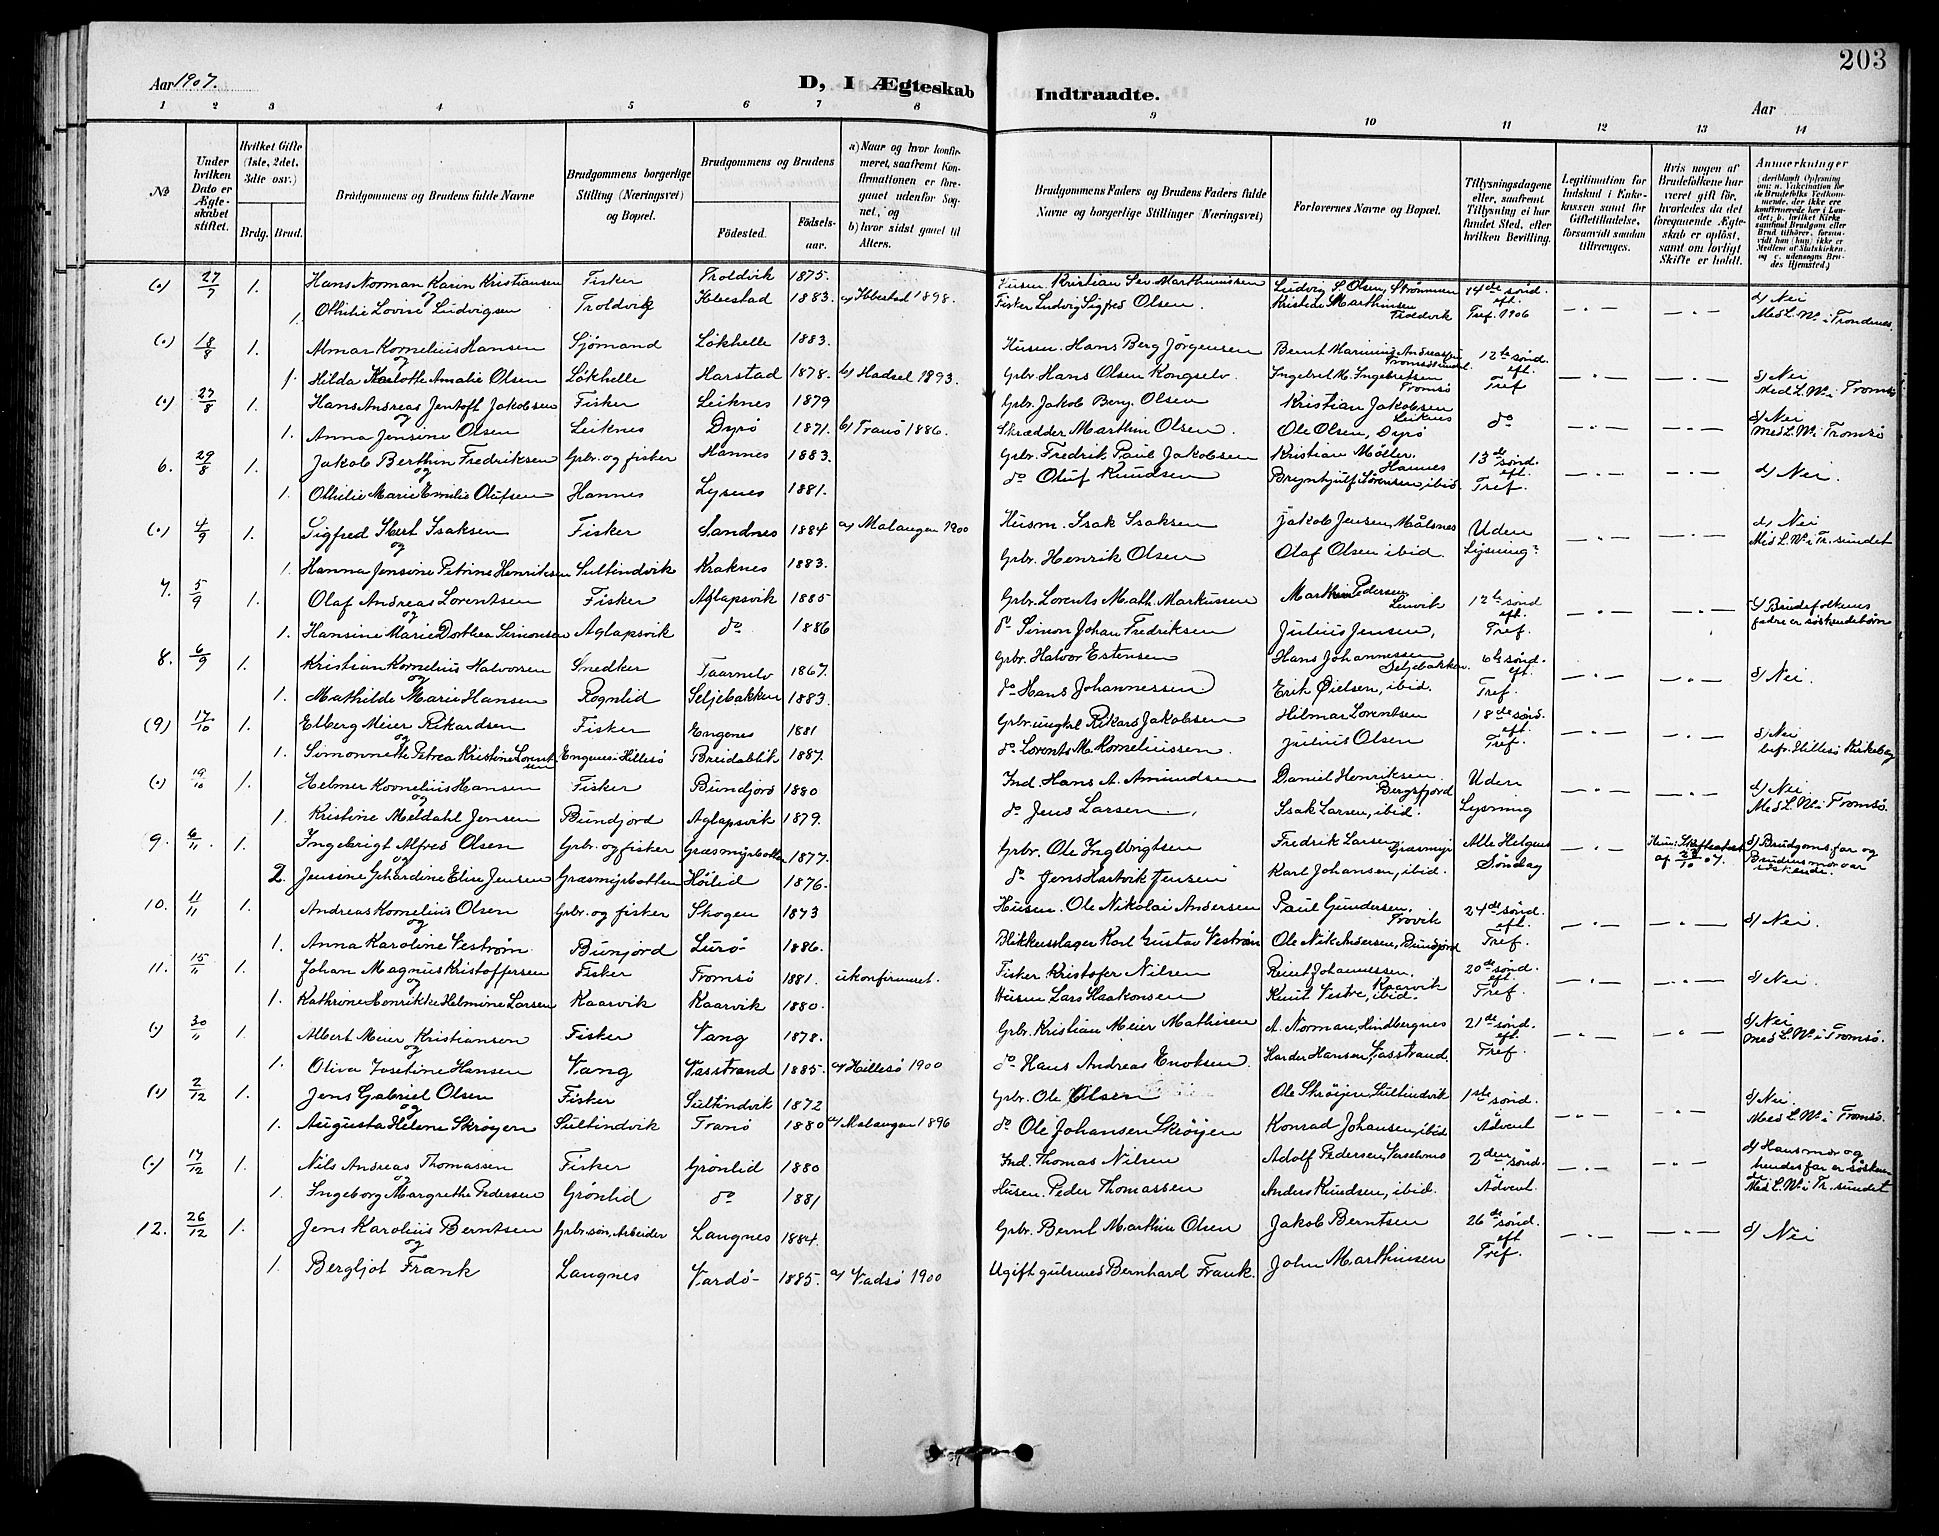 203
Aar 1907.
D, I Ægteskab Indtraadte.
Aar
1 2 3 4 5 6 7 8 9 10 11 12 13 14
No
Under hvilken Dato er Ægteskabet stiftet.
Hvilket Gifte (1ste, 2det, 3die osv.)
Brdg. Brud.
Brudgommens og Brudens fulde Navne
Brudgommens borgerlige Stilling (Næringsvei) og Bopæl.
Brudgommens og Brudens
Fødested.
Fødselsaar.
a) Naar og hvor konfirmeret, saafremt Konfirmationen er foregaaet udenfor Sognet, og
b) hvor sidst gaaet til Alters.
Brudgommens Faders og Brudens Faders fulde Navne og borgerlige Stillinger (Næringsvei)
Forlovernes Navne og Bopæl.
Tillysningsdagene eller, saafremt Tillysning ei har fundet Sted, efter hvilken Bevilling.
Legitimation for Indskud i Enkekassen samt for Giftetilladelse, forsaavidt saadan tiltrænges.
Hvis nogen af Brudefolkene har været gift før, hvorledes da det foregaaende Ægteskab er opløst, samt om lovligt Skifte er holdt.
Anmerkninger
(0) 27/7 1. Hans Norman Karin Kristiansen Fisker Troldvik 1875. Husm. Kristian Sev. Marthinussen Ludvig S. Olsen, Strømmen 14de sønd. d) Nei
og
1. Othilie Lovise Ludvigsen Troldvik Ibbestad 1883. a) Ibbestad 1898. Fisker Ludvig Sigfred Olsen. Marthinsen Troldvik eft. Tref. 1906 Med L. W. i Trondenes.
(0) 18/8 1. Almar Kornelius Hansen Sjømand Løkhelle 1883. Husm. Hans Berg Jørgensen Bernt Marinius Andreassen 12te sønd. eft. Tref d) Nei
og
1. Hilda Karlotte Amalie Olsen Løkhelle Harstad 1878. a) Hadsel 1893. Grbr Hans Olsen Kongselv. Ingebret M. Ingebretsen Tromsø Med L. W. i Tromsø
(0) 27/8 1. Hans Andreas Jentoft Jakobsen Fisker Leiknes 1879 Grbr. Jakob Berg. Olsen Kristian Jakobsen Leiknes do d) Nei
og
1. Anna Jensine Olsen Leiknes Dyrø 1871. b) Tranø 1886. Skrædder Marthin Olsen. Ole Olsen, Dyrø Med L. W. i Tromsø
6. 29/8 1. Jakob Berthin Fredriksen Grbr. og fisker Hannes 1883. Grbr. Fredrik Paul Jakobsen Kristian Møller. Hannes 13de sønd. eft. Tref. d) Nei.
og
1. Othilie Marie Emilie Olufsen Hannes Lysnes 1881. do Oluf Knudsen Brynhjulf Sørensen, ibid.
(0) 4/9 1. Sigfred Ebert Isaksen Fisker Sandnes 1884 a) Malangen 1900 Husm. Isak Isaksen Jakob Jensen, Målsnes Uden Lysning d) Nei
og
1. Hanna Jensine Petrine Henriksen Sultindvik Kraknes 1883. Grbr. Henrik Olsen Olaf Olsen ibid. Med L. W. i Tr. sundet
7. 5/9 1. Olaf Andreas Lorentsen Fisker Aglapsvik 1885 Grbr. Lorents Math. Markussen Marthin Pedersen Lenvik 12te sønd eft. Tref. d) Brudefolkenes fædre er søskendebørn
og
1. Hansine Marie Dorthea Simonsen Aglapsvik do 1886 do Simon Johan Fredriksen Julius Jensen,
8. 6/9 1. Kristian Kornelius Halvorsen Snedker Taarnelv 1867. Grbr. Halvor Estensen Hans Johannessen Seljebakken. 6te sønd. eft. Tref. d) Nei.
og
1. Mathilde Marie Hansen Rognlid Seljebakken 1883. do Hans Johannessen Erik Øielsen, ibid.
(9) 17/10 1. Elberg Meier Rikardsen Fisker Engenes 1881 Grbr. ungkl. Rikard Jakobsen Hilmar Lorentsen 18de sønd. Tref. d) Nei
og
1. Simonnette Petrea Kristine Lorentsen Engenes i Hillesø Breidablik 1887. do Lorents M. Kornelliussen. Julius Olsen bfr. Hillesø Kirkebog
(0) 19/10 1. Helmer Kornelius Hansen Fisker Bundjord 1880 Ind. Hans A. Amundsen Daniel Henriksen. Bergsfjord Uden Lysning d) Nei
og
1. Kristine Meldahl Jensen Bundjord Aglapsvik 1879. do Jens Larsen. Isak Larsen, ibid. Med L. W. i Tromsø.
9. 6/11 1. Ingebrigt Alfred Olsen Grbr. og fisker Græsmyrbotten 1877. Grbr. Ole Ingebrigtsen Fredrik Larsen, Græsmyr Alle Helgens Søndag Skifteattest af 23/10 07. d) Brudgoms far og Brudens mor var søskende.
og
2. Jensine Gehardine Elise Jensen Græsmyrbotten Høilid 1876. do Jens Hartvik Jensen Karl Johansen, ibid.
10. 11/11 1. Andreas Kornelius Olsen Grbr. og fisker Skogen 1873 Husm. Ole Nikolai Andersen Paul Gundersen, Trovik 24de sønd. eft. Tref. d) Nei.
og
1. Anna Karoline Vestrøm Bunjord Lurø 1886. Blikkenslager Karl Gustav Vestrøm Ole Nik. Andersen, Bundjord
11. 15/11 1. Johan Magnus Kristoffersen Fisker Tromsø 1881. ukonfirmeret. Fisker Kristofer Nilsen Johannessen, Kaarvik 20de sønd. eft. Tref. d) Nei.
og
1. Kathrine Henrikke Helmine Larsen Kaarvik Kaarvik 1880. Husm Lars Haakonsen Knut Vestre, ibid.
(0) 30/11 1. Albert Meier Kristiansen Fisker Vang 1878. Grbr. Kristian Meier Mathisen A. Norman, Lindbergnes 21de sønd. eft. Tref. d) Nei
og
1. Oliva Josefine Hansen Vang Vasstrand 1885. a) Hillesø 1900 do Hans Andreas Enoksen. Harder Hansen, Vasstrand, Med L. W. i Tromsø.
(0) 2/12 1. Jens Gabriel Olsen Fisker Sultindvik 1872 Grbr. Ole Olsen Ole Skrøjen, Sultindvik 1ste sønd. Advent d) Nei.
og
1. Augusta Helene Skrøyen Sultindvik Tranø 1880 a) Malangen 1896 do Ole Johansen Skrøyen Konrad Johansen, ibid Med L. W. i Tromsø.
(0) 17/12 1. Nils Andreas Thomassen Fisker Grønlid 1880 Ind. Thomas Nilsen Adolf Pedersen, 2den sønd. Advent d) Hans mor og hendes far er søskende
og
1. Ingeborg Margrethe Pedersen Grønlid do 1881 Husm. Peder Thomassen Anders Knudsen, ibid. Med L. W. i Tr. sundet
12. 26/12 1. Jens Karolius Berntsen Grbr.søn, Arbeider Langnes 1884. Grbr. Bernt Marthin Olsen Jakob Berntsen 26de sønd. eft Tref. d) Nei
og
1. Bergljot Frank Langnes Vardø 1885. a) Vadsø 1900 Ugift gulsmed Bernhard Frank. John Marthinsen